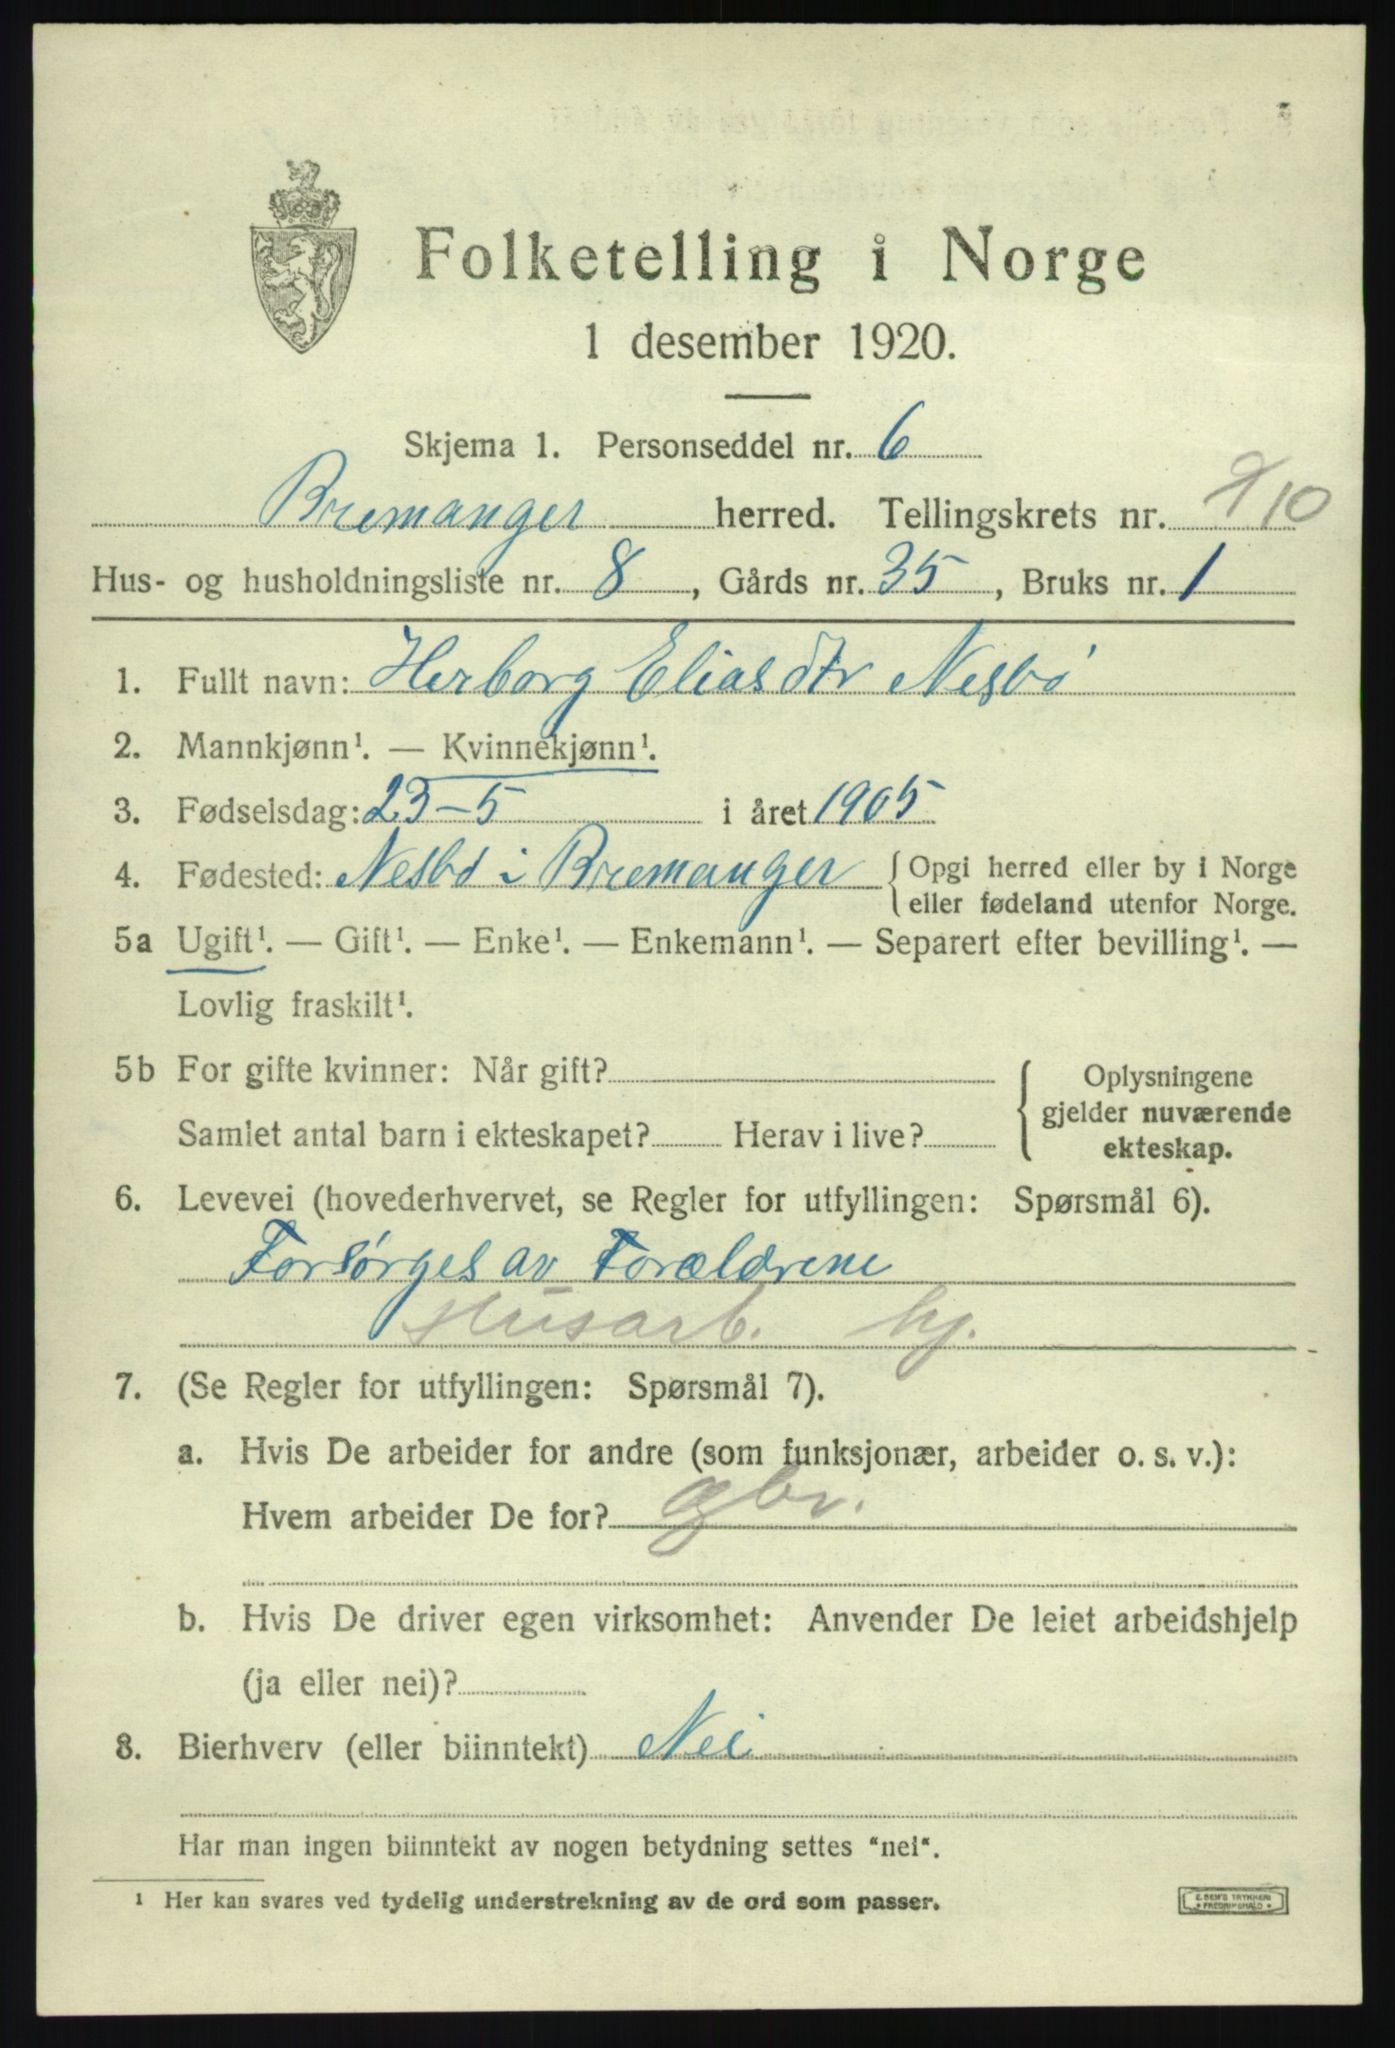 Folketelling i Norge
1 desember 1920.
Skjema 1. Personseddel nr. 6
Bremanger herred. Tellingskrets nr. 10
Hus- og husholdningsliste nr. 8, Gårds nr. 35, Bruks nr. 1
1. Fullt navn: Herborg Eliasdtr Nesbø
2. Mannkjønn¹. — Kvinnekjønn¹.
3. Fødselsdag: 23-5 i året 1905
4. Fødested: Nesbø i Bremanger { Opgi herred eller by i Norge
eller fødeland utenfor Norge.
5a Ugift¹. — Gift¹. — Enke¹. — Enkemann¹. — Separert efter bevilling¹. —
Lovlig fraskilt¹.
5b For gifte kvinner: Når gift? { Oplysningene
gjelder nuværende
Samlet antal barn i ekteskapet? Herav i live?
ekteskap.
6. Levevei (hovederhvervet, se Regler for utfyllingen: Spørsmål 6).
Forsørges av Forældrene
Husarb. hj.
7. (Se Regler for utfyllingen: Spørsmål 7).
a. Hvis De arbeider for andre (som funksjonær, arbeider o. s. v.):
Hvem arbeider De for? gbr.
b. Hvis De driver egen virksomhet: Anvender De leiet arbeidshjelp
(ja eller nei)?
8. Bierhverv (eller biinntekt) Nei
Har man ingen biinntekt av nogen betydning settes "nei".
¹ Her kan svares ved tydelig understrekning av de ord som passer.
E. SEM'S TRYKKERI
FREDRIKSHALD